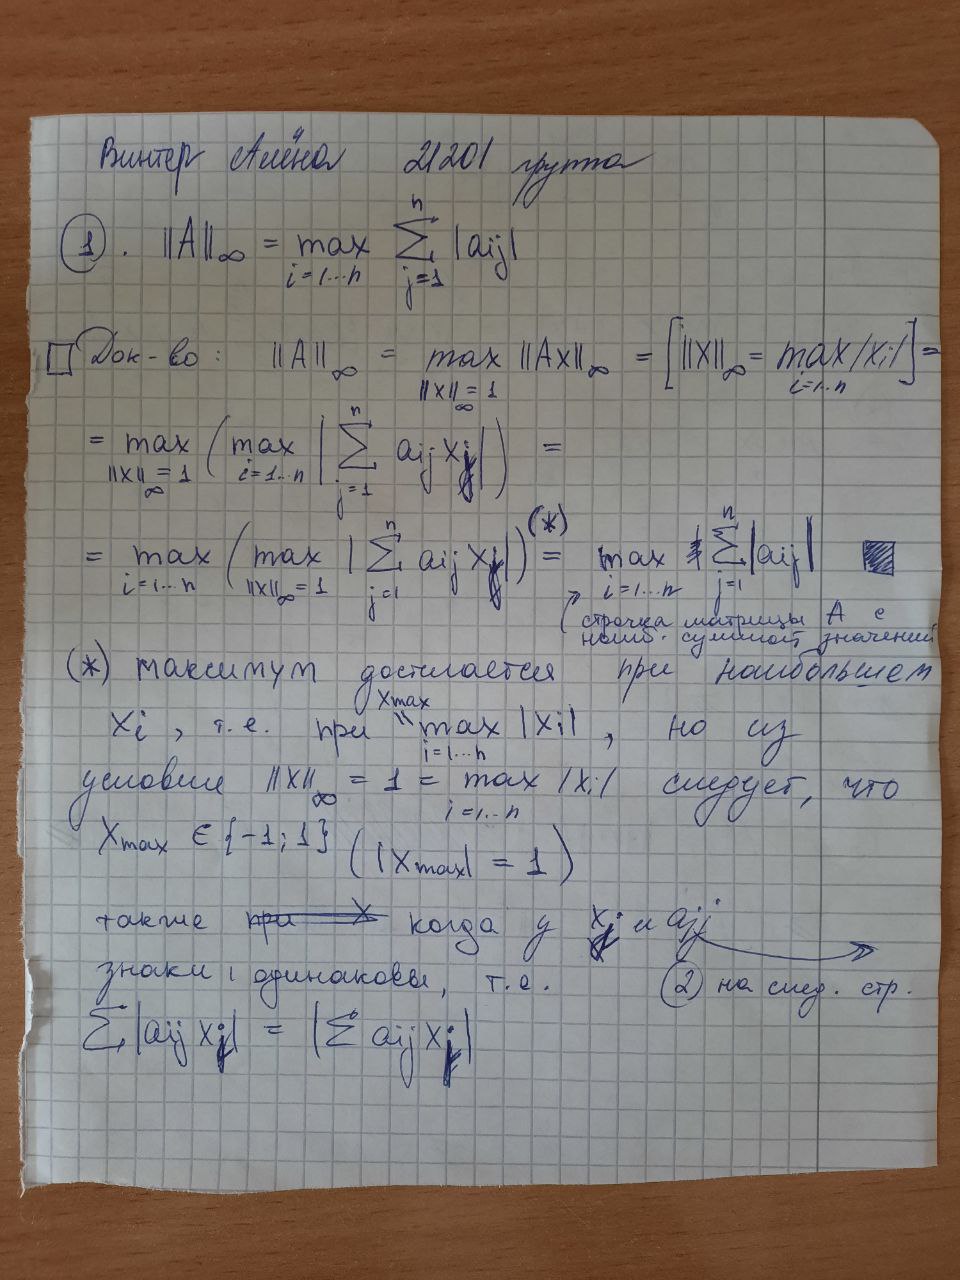 Винтер Алёна 21201 группа
1. ||A||∞ = max i=1...n ∑ j=1 n |aij|
□ Док-во: ||A||∞ = max ||x||∞=1 ||Ax||∞ = [||X||∞ = max i=1...n |xi|] =
= max ||x||∞=1 ( max i=1...n | ∑ j=1 n aij xj | ) =
= max i=1...n ( max ||x||∞=1 | ∑ j=1 n aij xj | ) (*) = max i=1...n ∑ j=1 n |aij| ■
строчка матрицы A с
наиб. суммой значений
(*) максимум достигается при наибольшем
xi, т.е. при xmax = max i=1...n |xi|, но из
условия ||x||∞ = 1 = max i=1...n |xi| следует, что
Xmax ∈ {-1; 1} (|Xmax| = 1)
также когда у xj и aij
знаки одинаковы, т.е. 2 на след. стр.
∑ |aij xj| = |∑ aij xj|